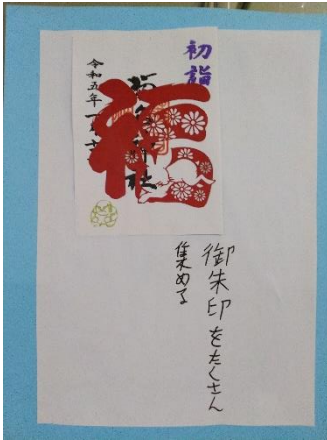 初詣
福
令和五年一月
御朱印をたくさん
集める